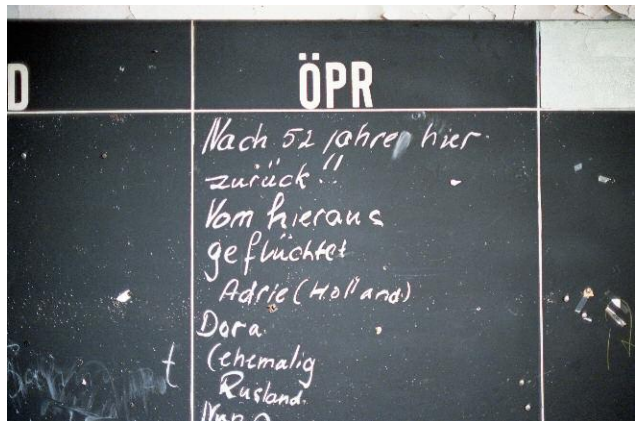 D
ÖPR
Nach 52 jahren hier
zurück!!
Vom hieraus
geflüchtet
Adrie (Holland)
Dora
(ehemalig
Rusland.